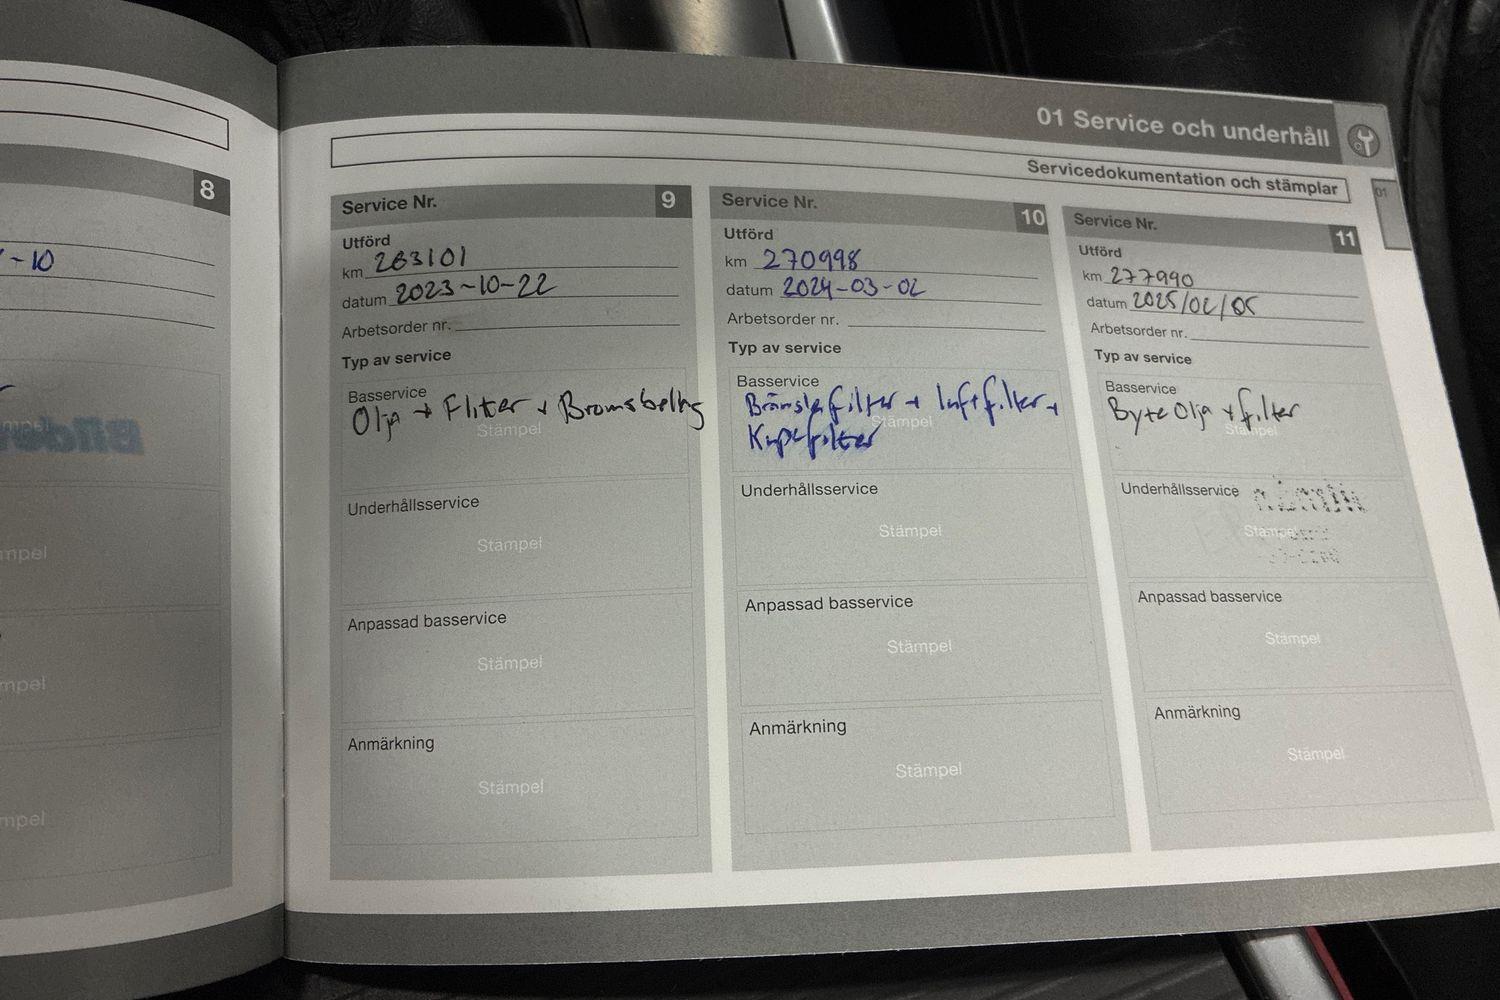 01 Service och underhåll
01
Servicedokumentation och stämplar
8
-10
mpel
mpel
mpel
Service Nr. 9
Utförd
km 263101
datum 2023-10-22
Arbetsorder nr.
Typ av service
Basservice
Olja + Fliter + Bromsbeläg
Stämpel
Underhållsservice
Stämpel
Anpassad basservice
Stämpel
Anmärkning
Stämpel
Service Nr. 10
Utförd
km 270998
datum 2024-03-02
Arbetsorder nr.
Typ av service
Basservice
Bränslefilter + luftfilter +
Stämpel
Kupefilter
Underhållsservice
Stämpel
Anpassad basservice
Stämpel
Anmärkning
Stämpel
Service Nr. 11
Utförd
km 277990
datum 2025/02/05
Arbetsorder nr.
Typ av service
Basservice
Byte Olja + filter
Stämpel
Underhållsservice
Stämpel
Anpassad basservice
Stämpel
Anmärkning
Stämpel